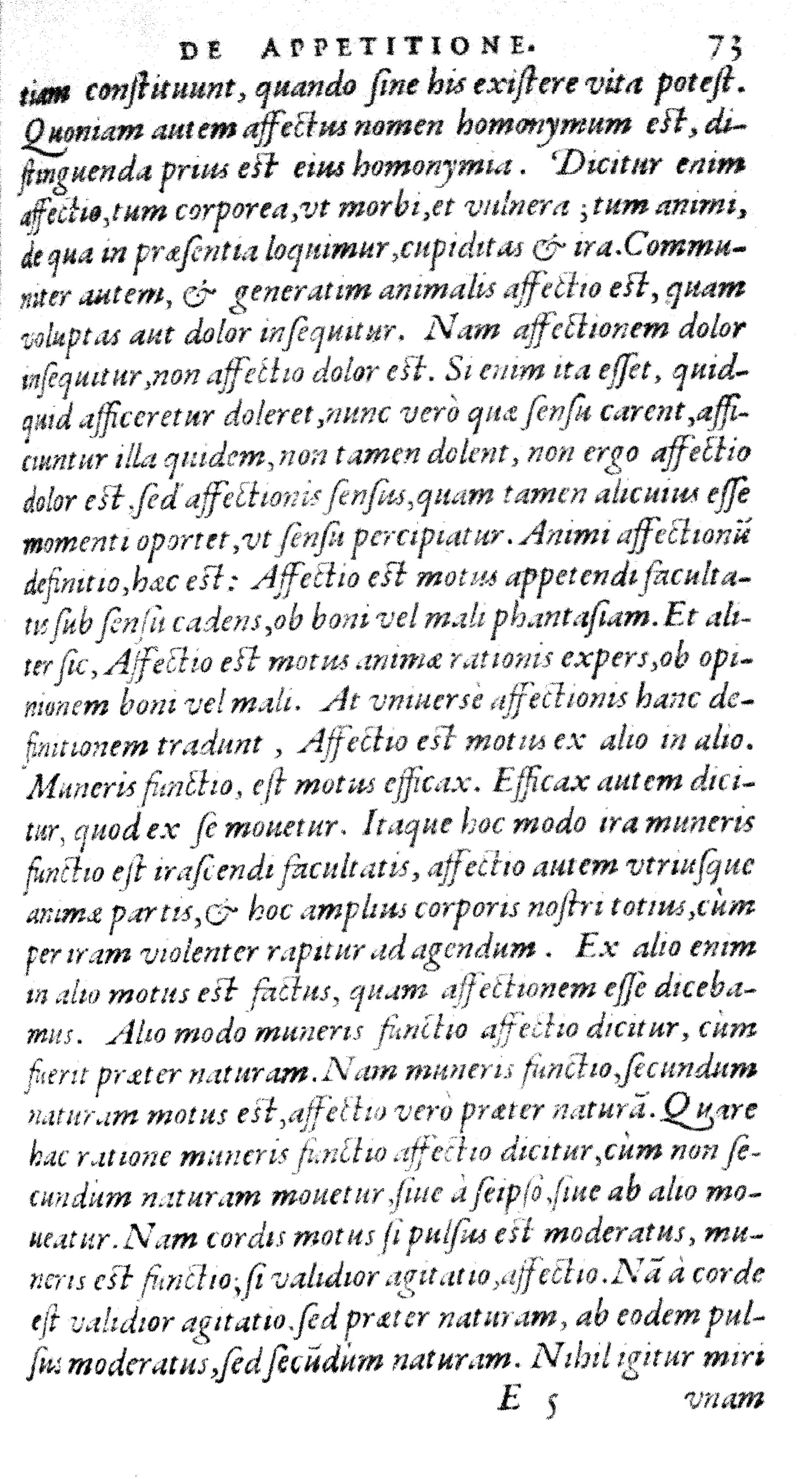 DE APPETITIONE. 73
tiam constituunt, quando sine his existere vita potest.
Quoniam autem affectus nomen homonymum est, di-
stinguenda prius est eius homonymia. Dicitur enim
affectio, tum corporea, vt morbi, et vulnera ; tum animi,
de qua in præsentia loquimur, cupiditas & ira. Commu-
niter autem, & generatim animalis affectio est, quam
voluptas aut dolor insequitur. Nam affectionem dolor
insequitur, non affectio dolor est. Si enim ita esset, quid-
quid afficeretur doleret, nunc verò quæ sensu carent, affi-
ciuntur illa quidem, non tamen dolent, non ergo affectio
dolor est, sed affectionis sensus, quam tamen alicuius esse
momenti oportet, vt sensu percipiatur. Animi affectionũ
definitio, hæc est: Affectio est motus appetendi faculta-
tis sub sensũ cadens, ob boni vel mali phantasiam. Et ali-
ter sic, Affectio est motus animæ rationis expers, ob opi-
nionem boni vel mali. At vniuersè affectionis hanc de-
finitionem tradunt , Affectio est motus ex alio in alio.
Muneris functio, est motus efficax. Efficax autem dici-
tur, quod ex se mouetur. Itaque hoc modo ira muneris
functio est irascendi facultatis, affectio autem vtriusque
animæ partis, & hoc amplius corporis nostri totius, cùm
per iram violenter rapitur ad agendum . Ex alio enim
in alio motus est factus, quam affectionem esse diceba-
mus. Alio modo muneris functio affectio dicitur, cùm
fuerit præter naturam. Nam muneris functio, secundum
naturam motus est, affectio verò præter naturã. Quare
hac ratione muneris functio affectio dicitur, cùm non se-
cundùm naturam mouetur, siue à seipso, siue ab alio mo-
ueatur. Nam cordis motus si pulsus est moderatus, mu-
neris est functio; si validior agitatio, affectio. Nã à corde
est validior agitatio, sed præter naturam, ab eodem pul-
sus moderatus, sed secũdùm naturam. Nihil igitur miri
E 5 vnam